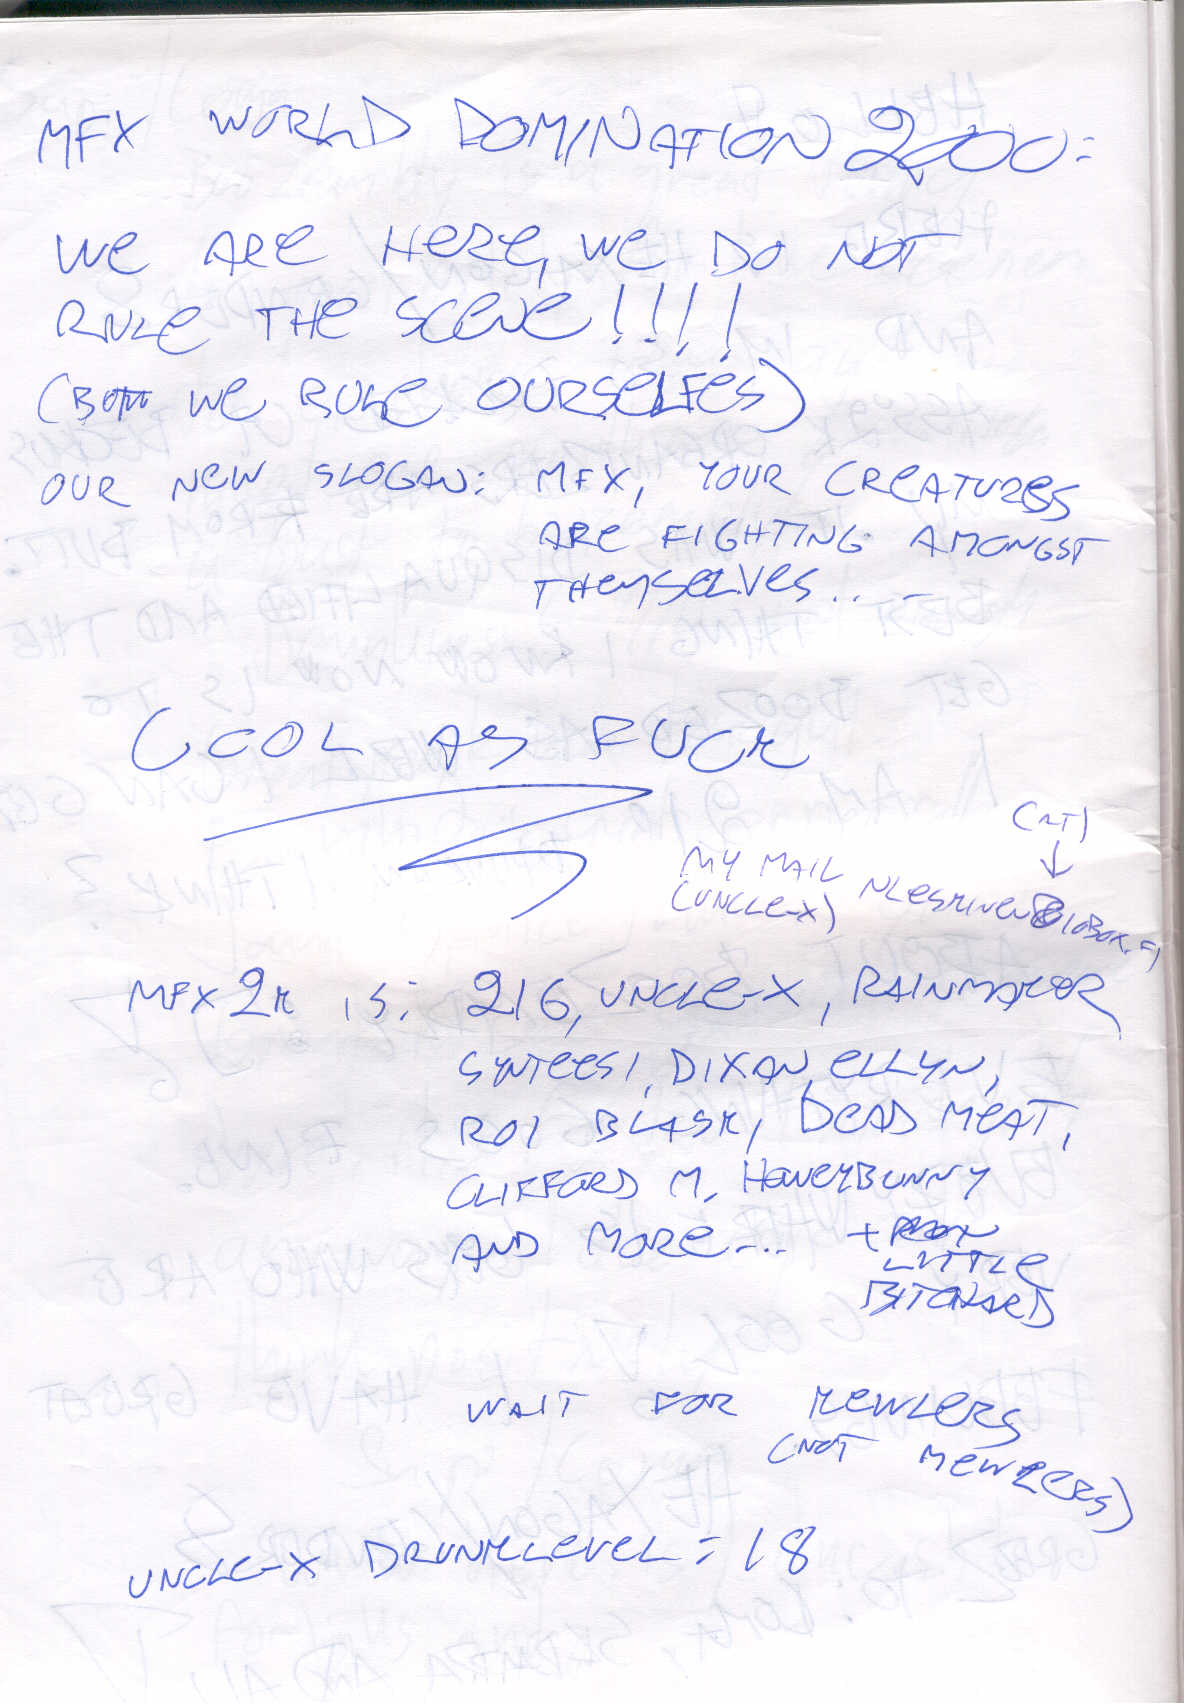 MFX WORLD DOMINATION 2000:
WE ARE HERE, WE DO NOT
RULE THE SCENE!!!!
(BUT WE RULE OURSELFES)
OUR NEW SLOGAN: MFX, YOUR CREATURES
ARE FIGHTING AMONGST
THEMYSELVES.....
COOL AS FUCK
(AT)
MY MAIL
(UNCLE-X)
MFX2K IS: 216, UNCLE-X, RAINMAKER
SYNTEESI, DIXAN, ELLYN,
ROI BLASK, DEAD MEAT,
CLIFFORD M, HONEYBUNNY
AND MORE.... +
LITTLE
BITCHARD
WAIT FOR KEWLERS
(NOT MEWLERS)
UNCLE-X DRUNKLEVEL = 18